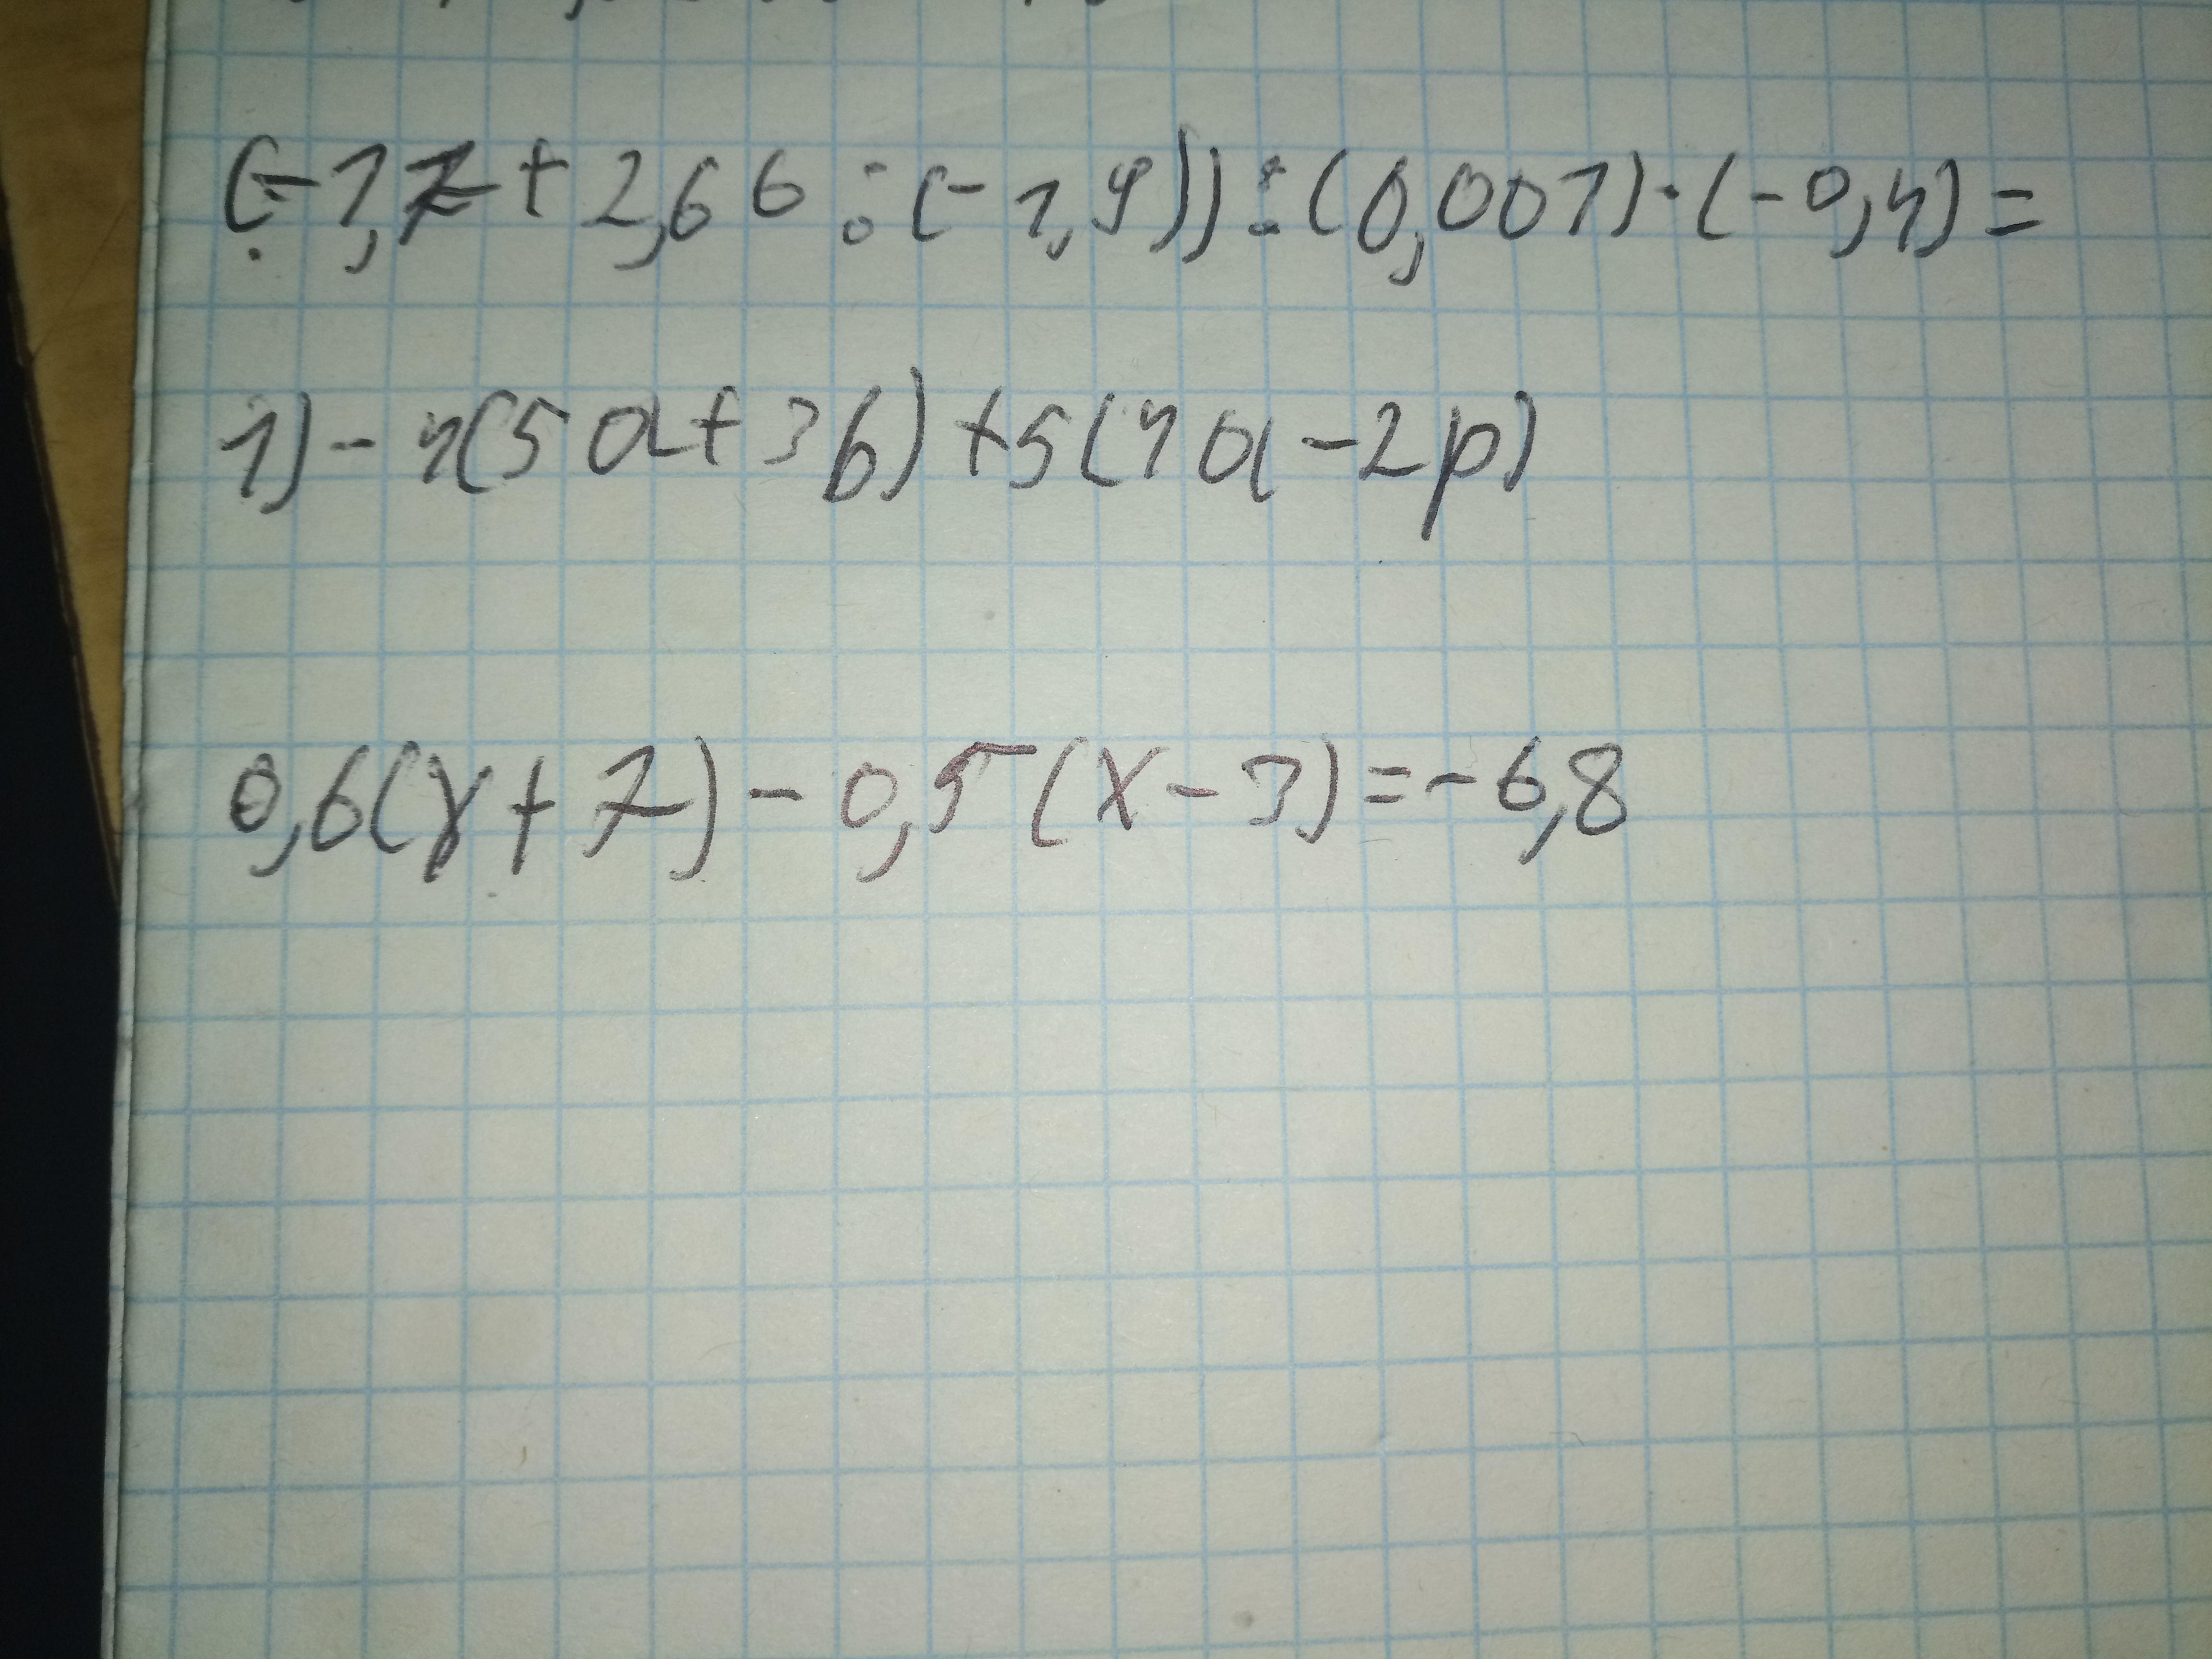 (-1,7+2,66:(-1,9)):(0,001)·(-0,4)=
1)-4(5a+3b)+5(4a-2p)
0,6(x+7)-0,5(x-3)=-6,8